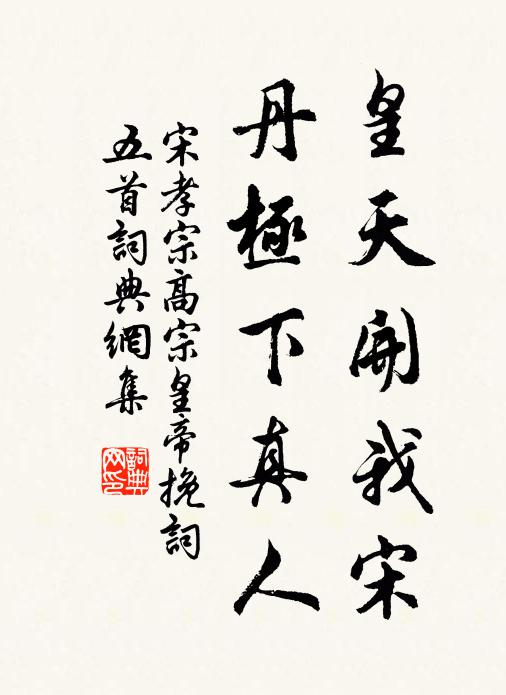 皇天開我宋
丹極下真人
宋孝宗高宗皇帝挽詞
五首詞典網集
詞典
网印